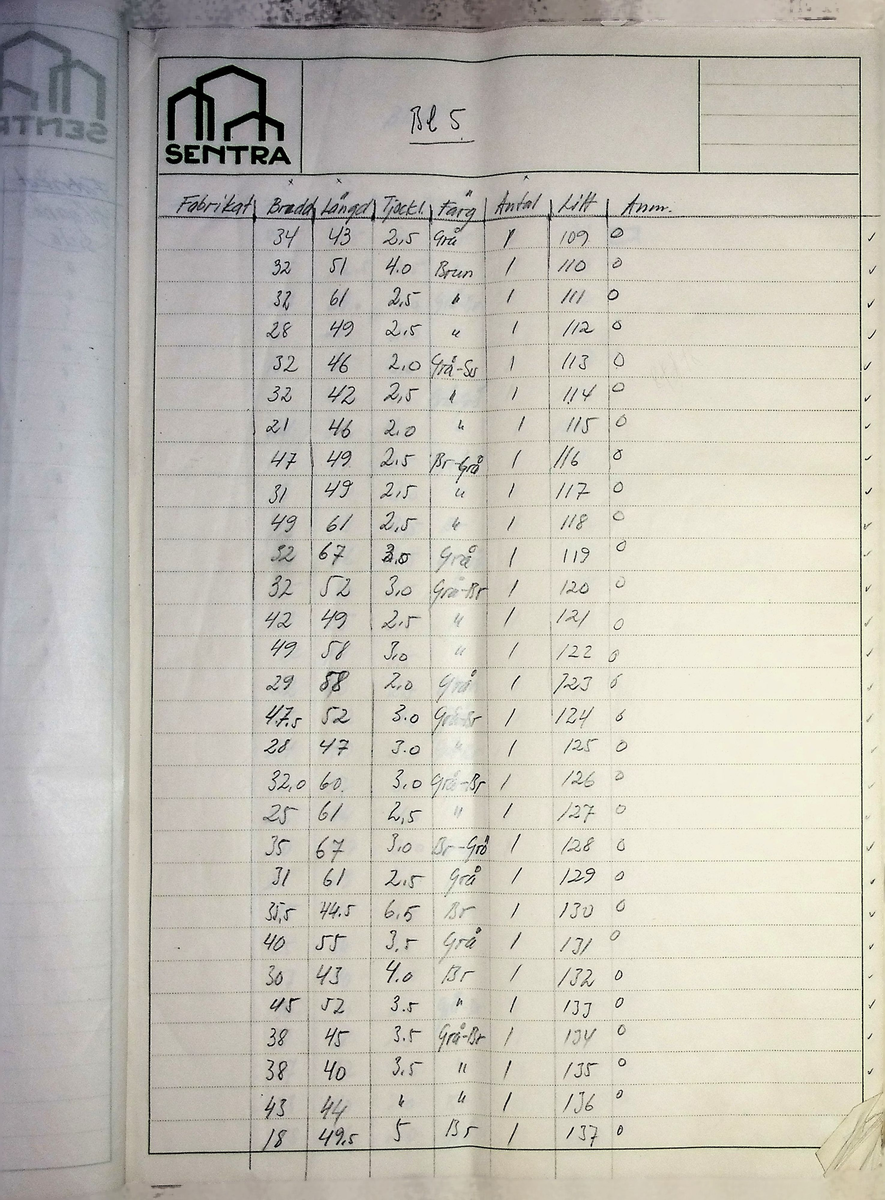 SENTRA
Bl 5
Fabrikat Bredd Längd Tjockl. Färg Antal Litt Anm.
34 43 2,5 Grå 1 109 0
32 51 4.0 Brun 1 110 0
32 61 2,5 " 1 111 0
28 49 2,5 " 1 112 0
32 46 2,0 Grå-Sv 1 113 0
32 42 2,5 " 1 114 0
21 46 2.0 " 1 115 0
47 49 2.5 Br-Grå 1 116 0
31 49 2,5 " 1 117 0
49 61 2,5 " 1 118 0
32 67 Grå 1 119 0
32 52 3,0 Grå-Br 1 120 0
42 49 2.5 " 1 121 0
49 58 3,0 " 1 122 0
29 58 2.0 Grå 1 123 0
47.5 52 3.0 Grå-Br 1 124 0
28 47 3.0 " 1 125 0
32,0 60 3,0 Grå-Br 1 126 0
25 61 2,5 " 1 127 0
35 67 3,0 Br-Grå 1 128 0
31 61 2.5 Grå 1 129 0
35,5 44.5 6,5 Br 1 130 0
40 55 3,5 Grå 1 131 0
30 43 4.0 Br 1 132 0
45 52 3.5 " 1 133 0
38 45 3.5 Grå-Br 1 134 0
38 40 3,5 " 1 135 0
43 44 " " 1 136 0
18 49,5 5 Br 1 137 0